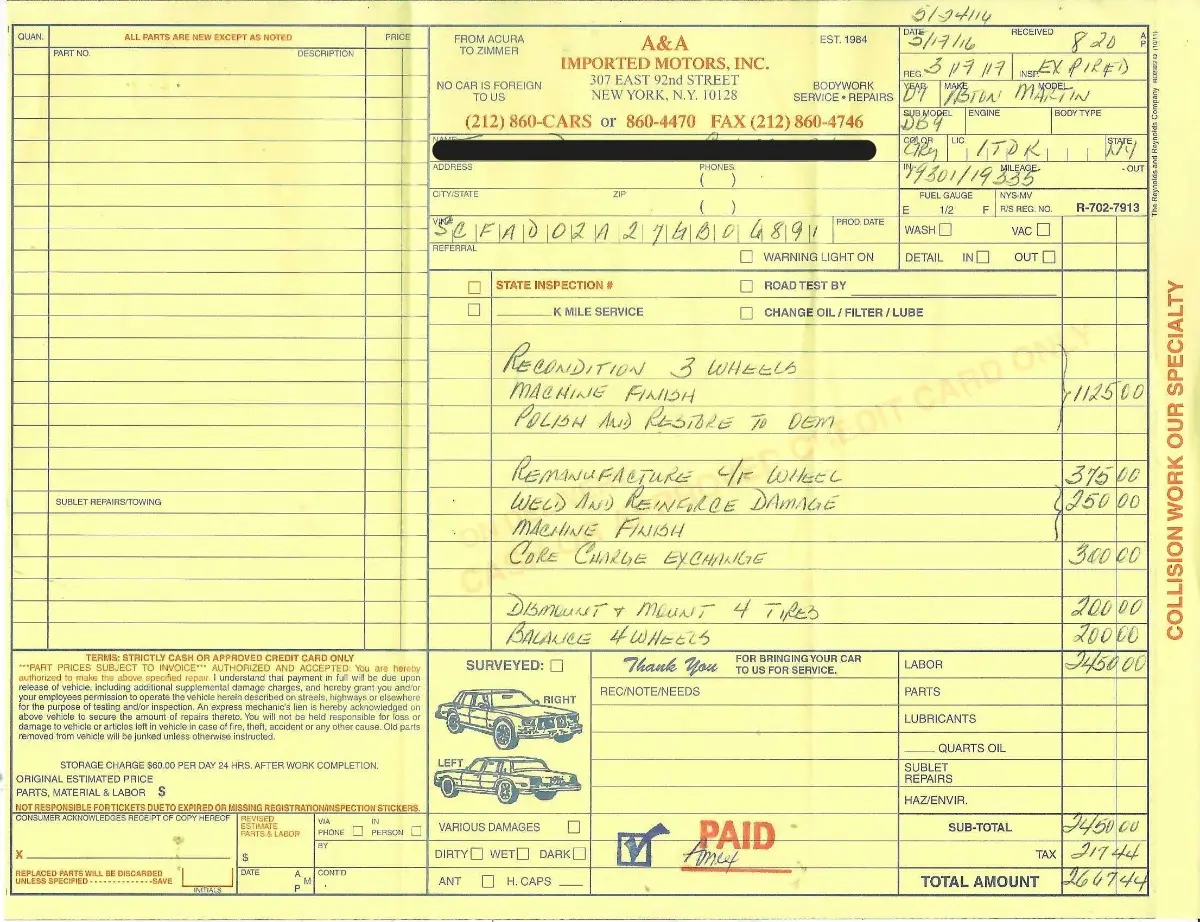 5/24/16
QUAN.
ALL PARTS ARE NEW EXCEPT AS NOTED
PRICE
PART NO.
DESCRIPTION
SUBLET REPAIRS/TOWING
FROM ACURA
TO ZIMMER
NO CAR IS FOREIGN
TO US
A&A
IMPORTED MOTORS, INC.
307 EAST 92nd STREET
NEW YORK, N.Y. 10128
EST. 1984
BODYWORK
SERVICE • REPAIRS
(212) 860-CARS or 860-4470 FAX (212) 860-4746
DATE 5/17/16 RECEIVED 8 20 A P
REG. 3/17/17 INSP. EXPIRED
YEAR 07 MAKE ASTON MARTIN MODEL
SUB MODEL DB9 ENGINE BODY TYPE
COLOR GREY LIC. 1TDK STATE NY
IN 19301/19335 MILEAGE - OUT
FUEL GAUGE NYS-MV
E 1/2 F R/S REG. NO. R-702-7913
WASH VAC
DETAIL IN OUT
NAME
ADDRESS PHONES
( )
CITY/STATE ZIP
( )
VIN# SCFAD02A27GB06891 PROD. DATE
REFERRAL
WARNING LIGHT ON
STATE INSPECTION # ROAD TEST BY
K MILE SERVICE CHANGE OIL / FILTER / LUBE
RECONDITION 3 WHEELS
MACHINE FINISH 1125 00
POLISH AND RESTORE TO OEM
REMANUFACTURE L/F WHEEL 375 00
WELD AND REINFORCE DAMAGE 250 00
MACHINE FINISH
CORE CHARGE EXCHANGE 300 00
DISMOUNT + MOUNT 4 TIRES 200 00
BALANCE 4 WHEELS 200 00
COLLISION WORK OUR SPECIALTY
TERMS: STRICTLY CASH OR APPROVED CREDIT CARD ONLY
***PART PRICES SUBJECT TO INVOICE*** AUTHORIZED AND ACCEPTED: You are hereby
authorized to make the above specified repair. I understand that payment in full will be due upon
release of vehicle, including additional supplemental damage charges, and hereby grant you and/or
your employees permission to operate the vehicle herein described on streets, highways or elsewhere
for the purpose of testing and/or inspection. An express mechanic's lien is hereby acknowledged on
above vehicle to secure the amount of repairs thereto. You will not be held responsible for loss or
damage to vehicle or articles left in vehicle in case of fire, theft, accident or any other cause. Old parts
removed from vehicle will be junked unless otherwise instructed.
STORAGE CHARGE $60.00 PER DAY 24 HRS. AFTER WORK COMPLETION.
ORIGINAL ESTIMATED PRICE
PARTS, MATERIAL & LABOR $
NOT RESPONSIBLE FOR TICKETS DUE TO EXPIRED OR MISSING REGISTRATION/INSPECTION STICKERS.
CONSUMER ACKNOWLEDGES RECEIPT OF COPY HEREOF
X
REPLACED PARTS WILL BE DISCARDED
UNLESS SPECIFIED - - - - - - - - - - - - - SAVE
INITIALS
REVISED
ESTIMATE
PARTS & LABOR
$
DATE A M P
VIA PHONE IN PERSON
BY
CONT'D
SURVEYED:
RIGHT
LEFT
VARIOUS DAMAGES
DIRTY WET DARK
ANT H. CAPS
Thank You FOR BRINGING YOUR CAR
TO US FOR SERVICE.
REC/NOTE/NEEDS
PAID
Amex
LABOR 2450 00
PARTS
LUBRICANTS
QUARTS OIL
SUBLET
REPAIRS
HAZ/ENVIR.
SUB-TOTAL 2450 00
TAX 217 44
TOTAL AMOUNT 2667 44